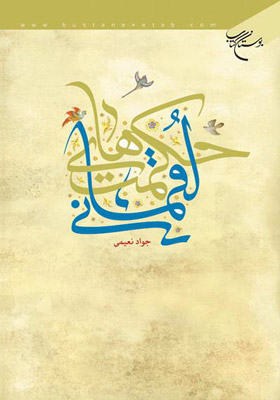 www.bustaneketab.com
بوستان کتاب
حکمت‌های
لقمانی
جواد نعیمی